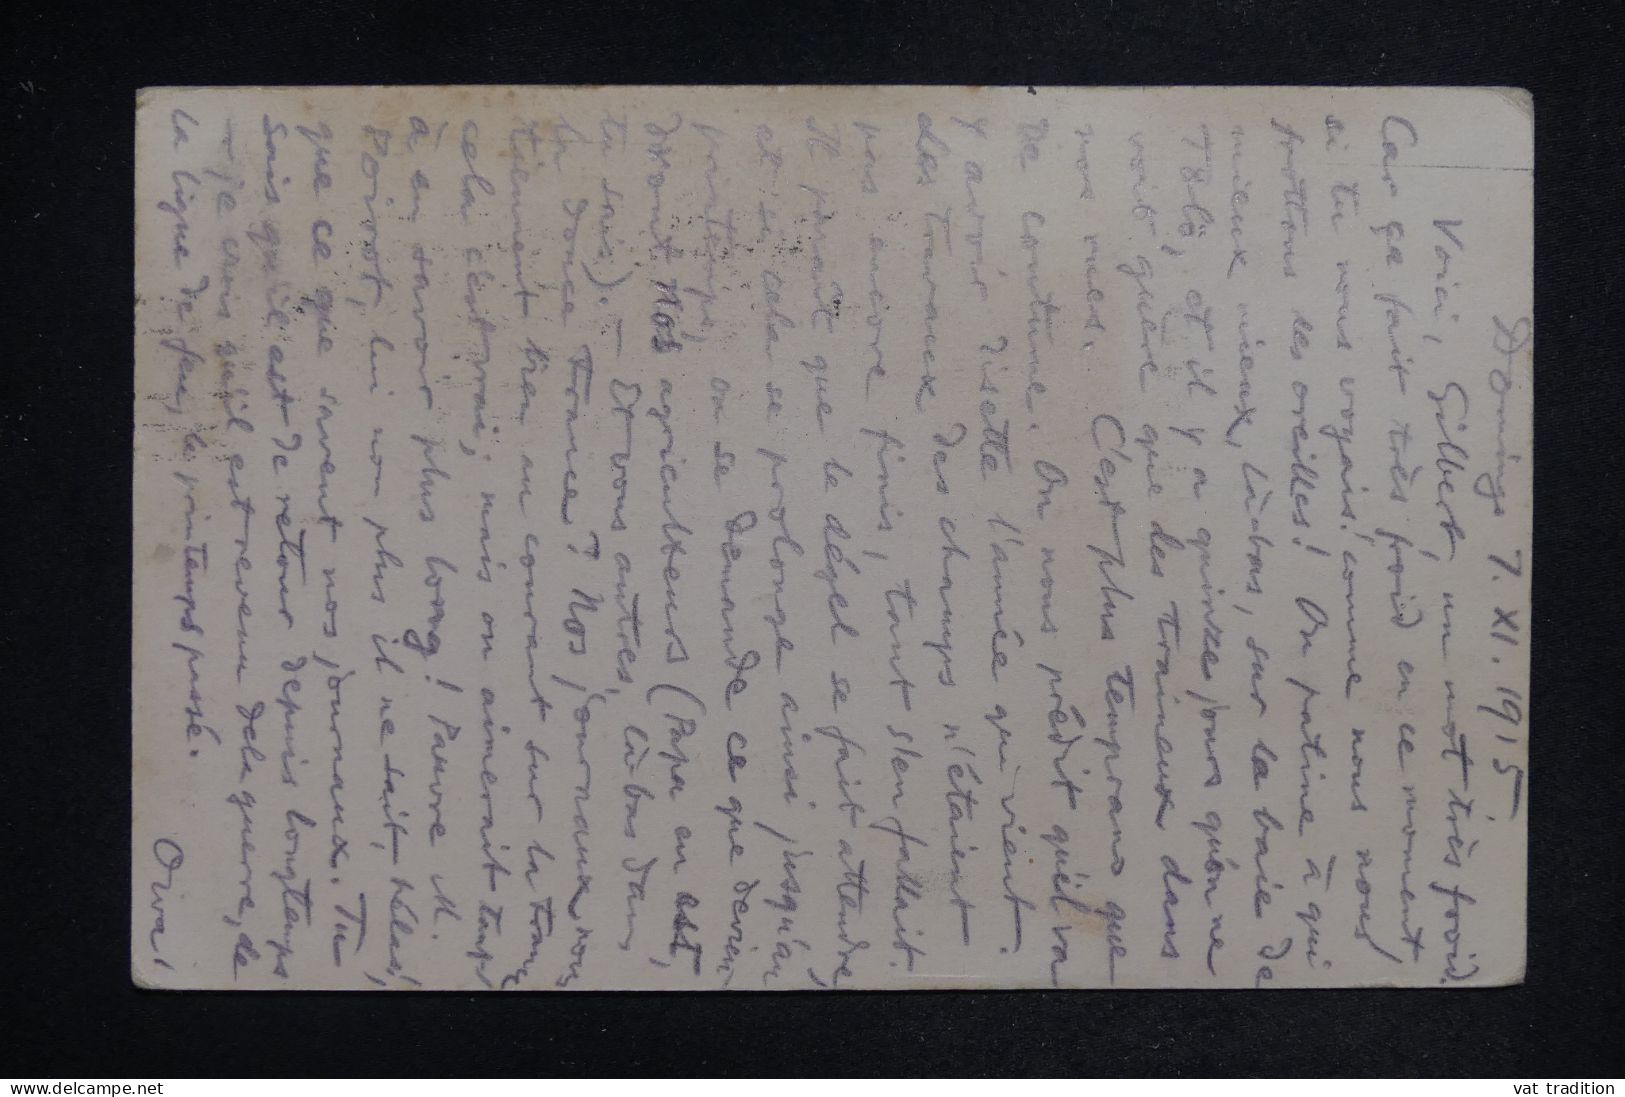 Dominigo 7. XI. 1915
Voici, Gilbert, un mot très froid.
Car ça fait très froid en ce moment,
si tu nous voyais! comme nous nous
frottons les oreilles! On patine à qui
mieux mieux, là-bas, sur la baie de
Tölö, et il y a quinze jours qu'on ne
voit guère que des traineaux dans
nos rues. C'est plus temprano que
de coutume. On nous prédit qu'il va
y avoir disette l'année qui vient.
des travaux des champs n'étaient
pas encore finis, tant s'en fallait.
Il paraît que le dégel se fait attendre,
et si cela se prolonge ainsi jusqu'au
printemps, on se demande ce que devien-
dront nos agriculteurs (Papa en est,
tu sais). – Et vous autres, là-bas dans
la douce France? Nos journaux nous
tiennent bien au courant sur la France
cela c'est vrai; mais on aimerait tant
à en savoir plus long! Pauvre M.
Poirot, lui non plus il ne sait, hélas!
que ce que savent nos journaux. Tu
sais qu'il est de retour depuis longtemps
– je crois qu'il est revenu de la guerre, de
la ligne de feu, le printemps passé.
Oiva.
delcampe.net
vat tradition